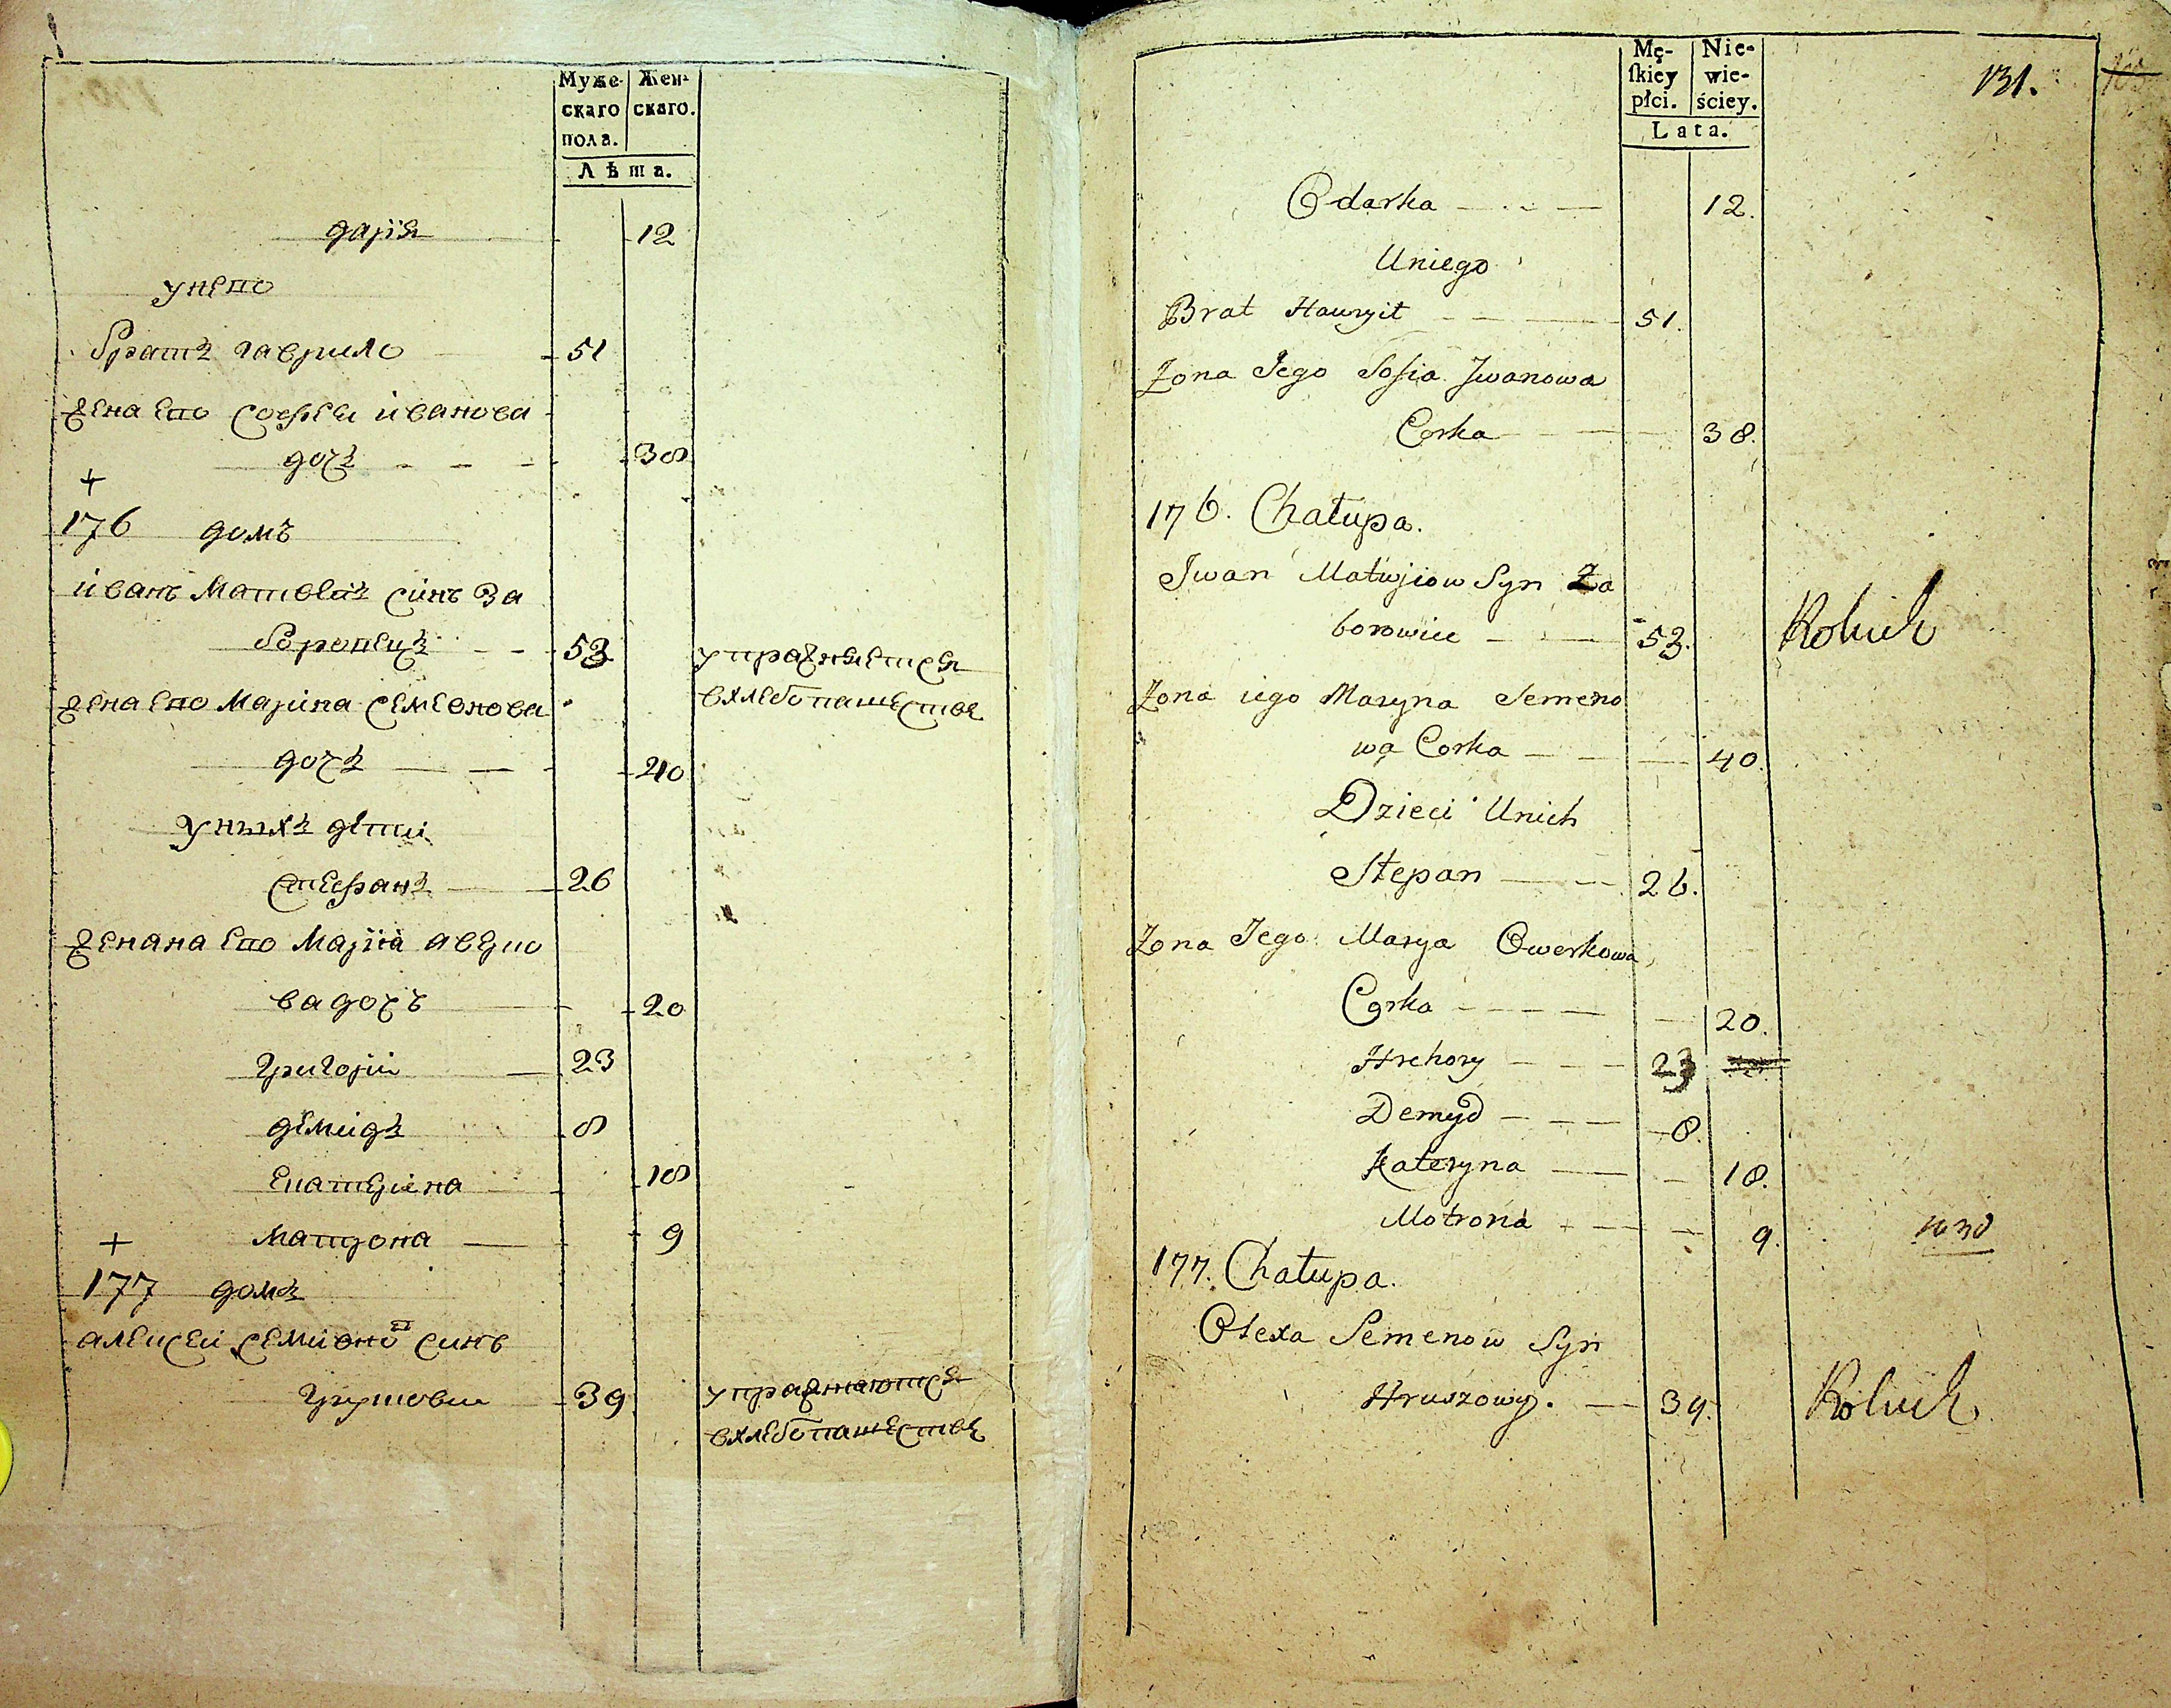 Муже- Жен-
скаго скаго.
пола.
Лѣта.
дарія 12
у него
братъ гаврило 51
жена его софъя иванова
дочъ 38
+
176 домъ
иванъ Матвеевъ синъ За
боровецъ 53 упражняется
жена его Марина семеонова в хлебопашестве
дочъ 40
у ныхъ дети
стефанъ 26
женана его Маріа аверко
ва дочъ 20
григорій 23
демидъ 8
екатерина 18
+ матрона 9
177 домъ
алексеи семионовъ синъ
грушови 39 упражняются
в хлебопашестве
Mę- Nie-
skiey wie-
płci. ściey.
Lata.
131.
Odarka 12.
Uniego
Brat Hawryił 51.
Zona Jego Sofia Jwanowa
Corka 38.
176. Chałupa.
Jwan Matwjiow Syn Za
borowiec 53. Rolnik
Zona iego Maryna Semeno
wa Corka 40.
Dzieci Unich
Stepan 26.
Zona Jego Marya Owerkowa
Corka 20.
Hrehory 23
Demyd 8.
Kateryna 18.
Motrona 9.
177. Chałupa.
Olexa Semenow Syn
Hruszowy. 39. Rolnik